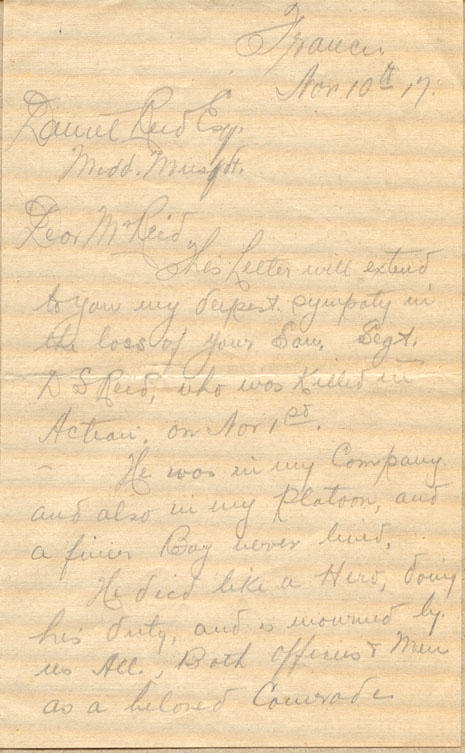 France
Nov 10th 17.
Daniel Reid Esq.
Midd. Musqdt.
Dear Mr Reid
This Letter will extend
to you my deepest sympaty in
the loss of your Son, Segt.
D S Reid, who was Killed in
Action. on Nov 1st.
He was in my Company
and also in my Platoon, and
a finer Boy never lived.
He died like a Hero, doing
his duty, and is mourned by
us All, Both Officers & Men
as a beloved Comrade